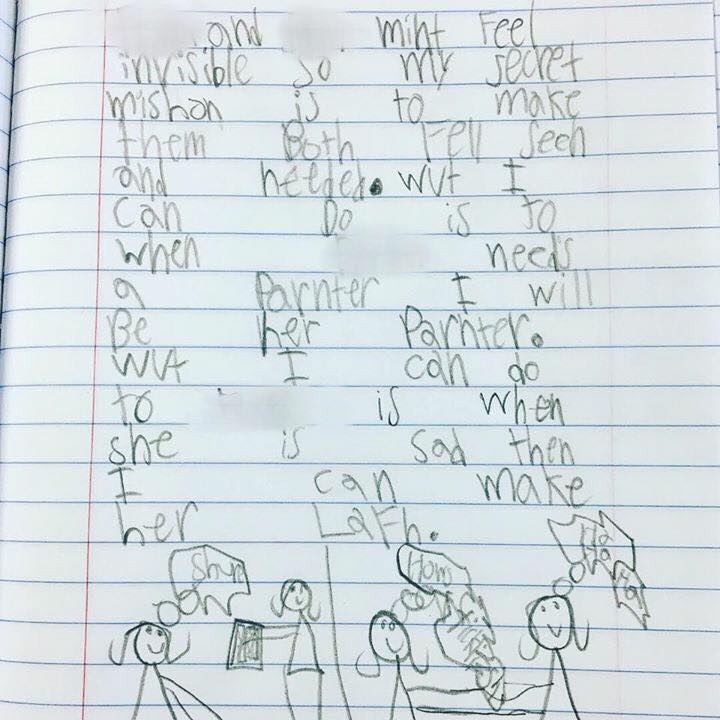 and mint Feel
invisible so my secret
mishon is to make
them Both Fell seen
and needed. wut I
can Do is to
when needs
a Parnter I will
Be her Parnter.
wut I can do
to is when
she is sad then
I can make
her LaFh.
Ha
Ha
Ha